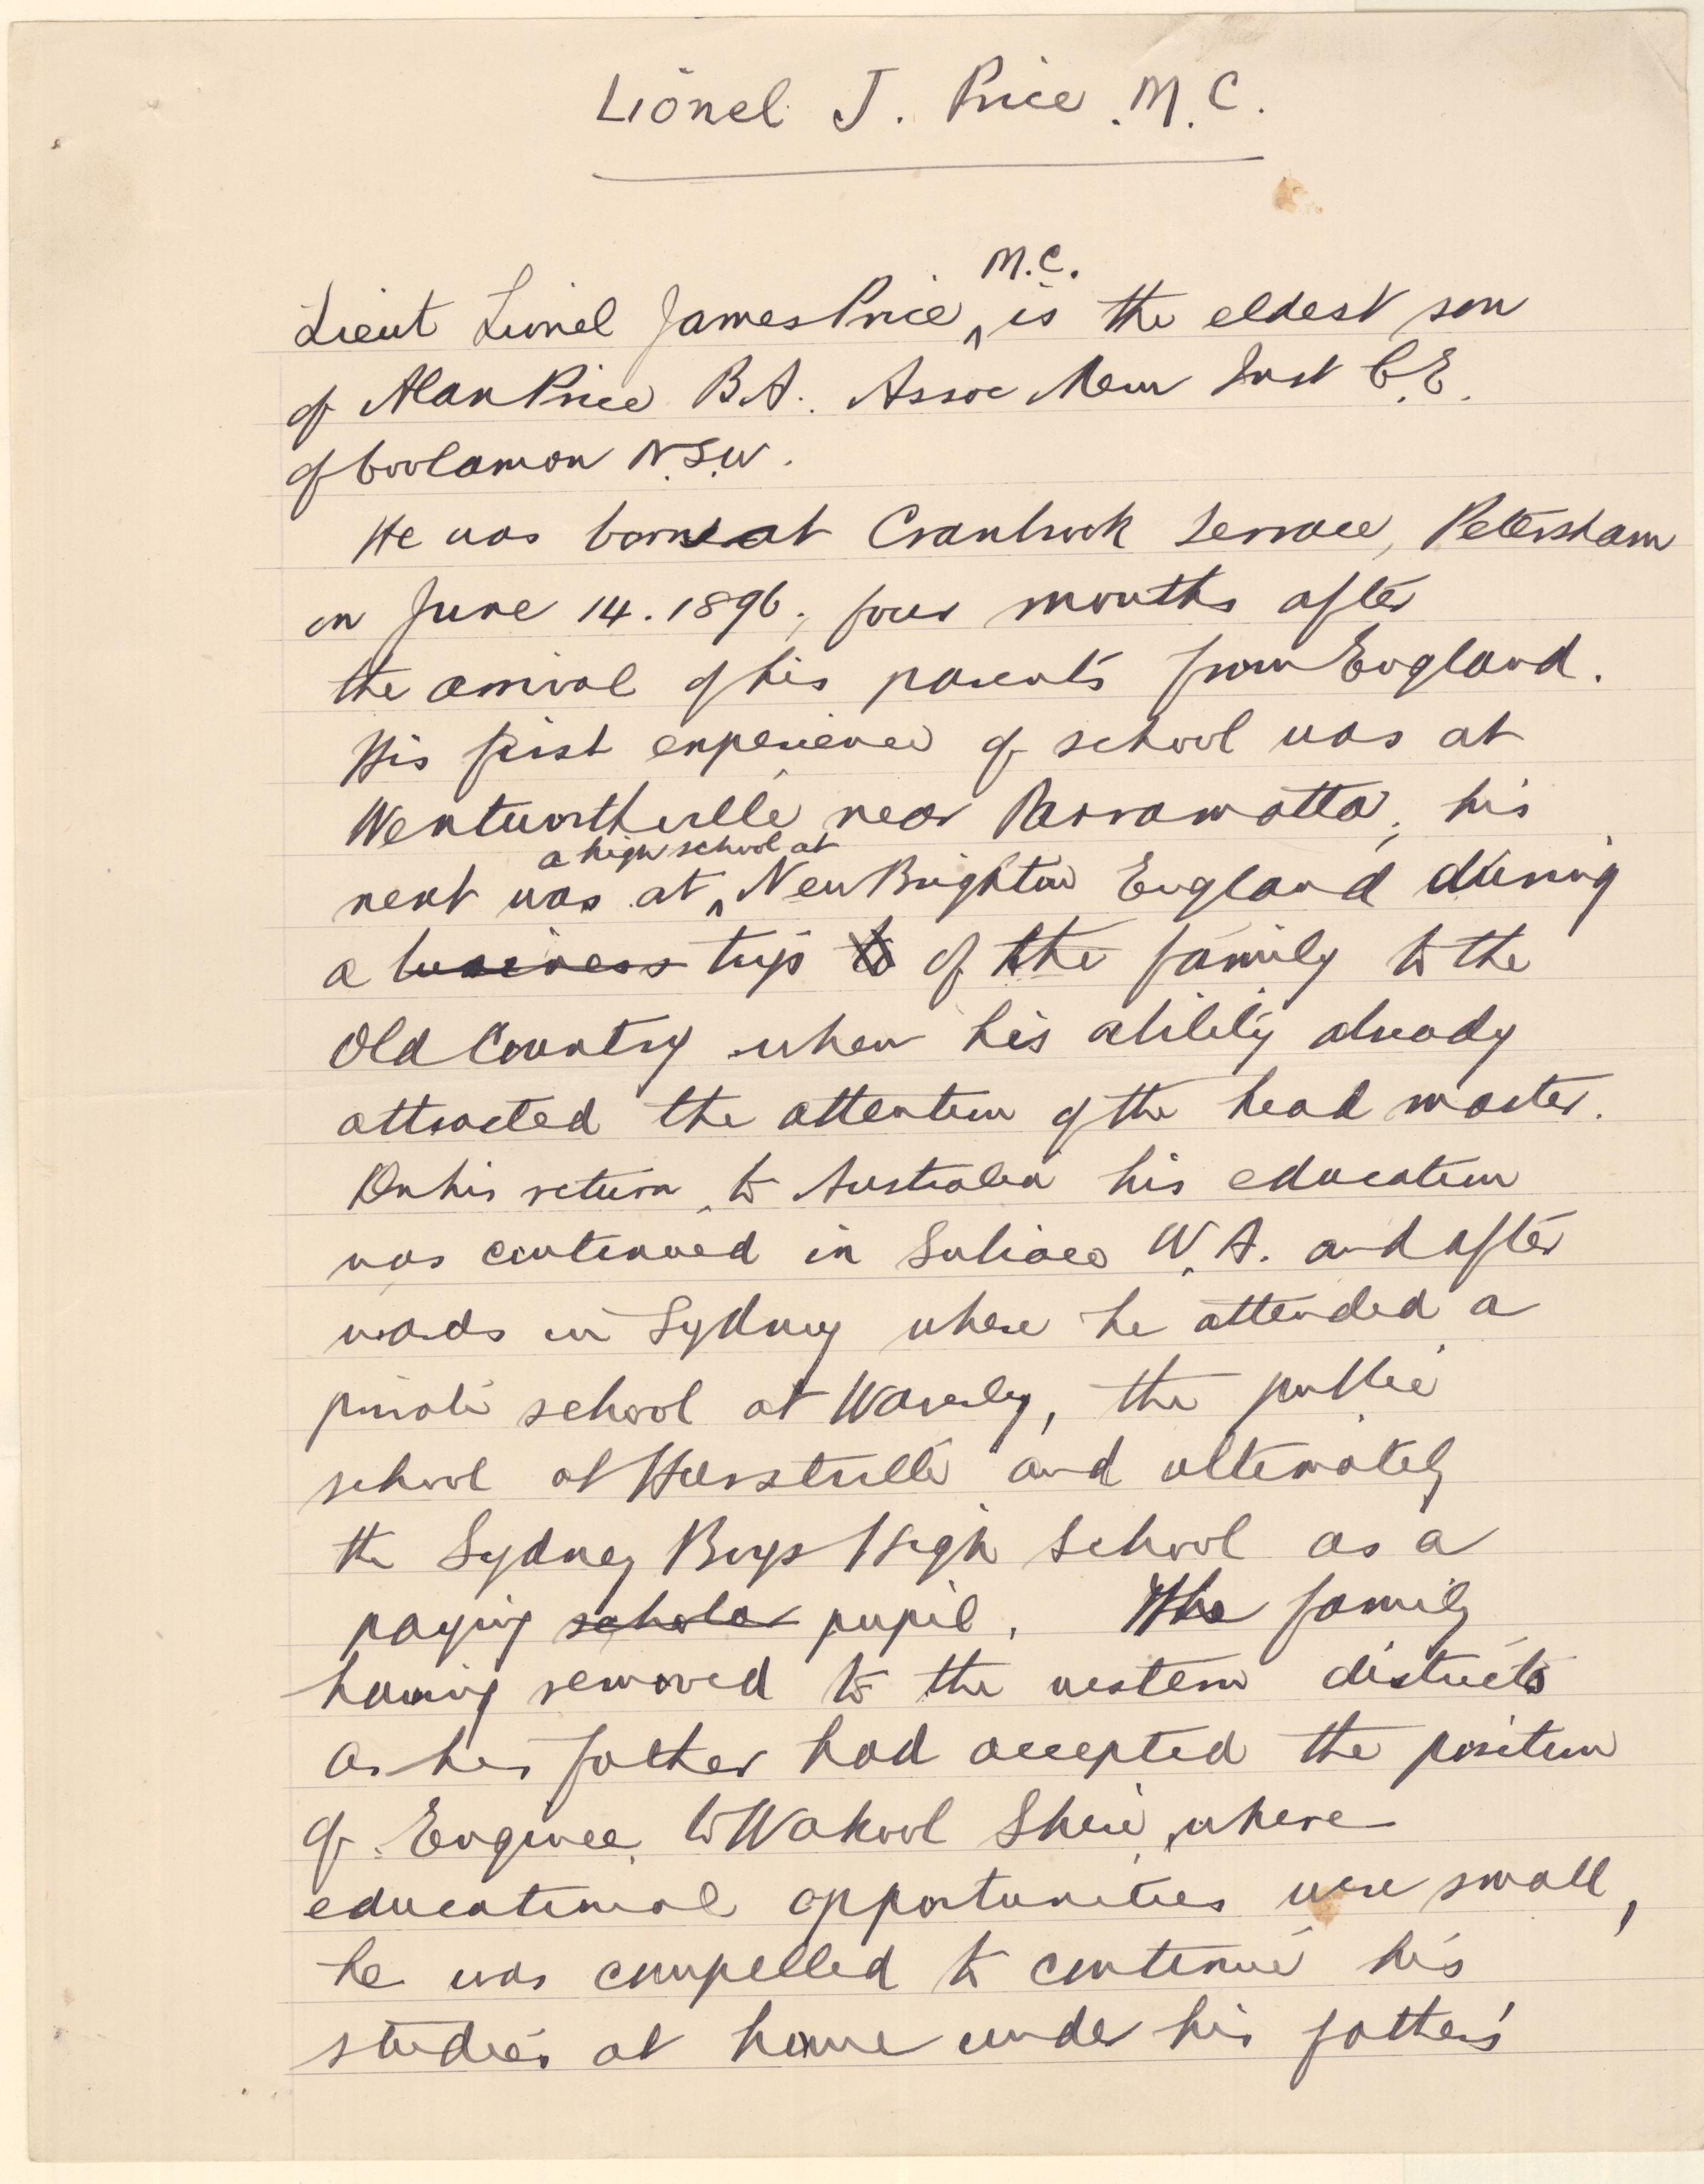 Lionel J. Price. M.C.
M.C.
Lieut Lionel James Price, is the eldest son
of Alan Price B.A. Assoc Mem Inst C.E.
of Coolamon N.S.W.
He was born at Cranbrook Terrace, Petersham
on June 14. 1896, four months after
the arrival of his parents from England.
His first experience of school was at
Wentworthville near Parramatta, his
a high school at
next was at New Brighton England during
a business trip to of the family to the
Old Country when his ability already
attracted the attention of the head master.
On his return to Australia his education
was continued in Subiaco W.A. and after
wards in Sydney where he attended a
private school at Waverley, the public
school at Hurstville and ultimately
the Sydney Boys High School as a
paying scholar pupil. The family
having removed to the western districts
as his father had accepted the position
of Engineer to Wakool Shire, where
educational opportunities were small,
he was compelled to continue his
studies at home under his father's